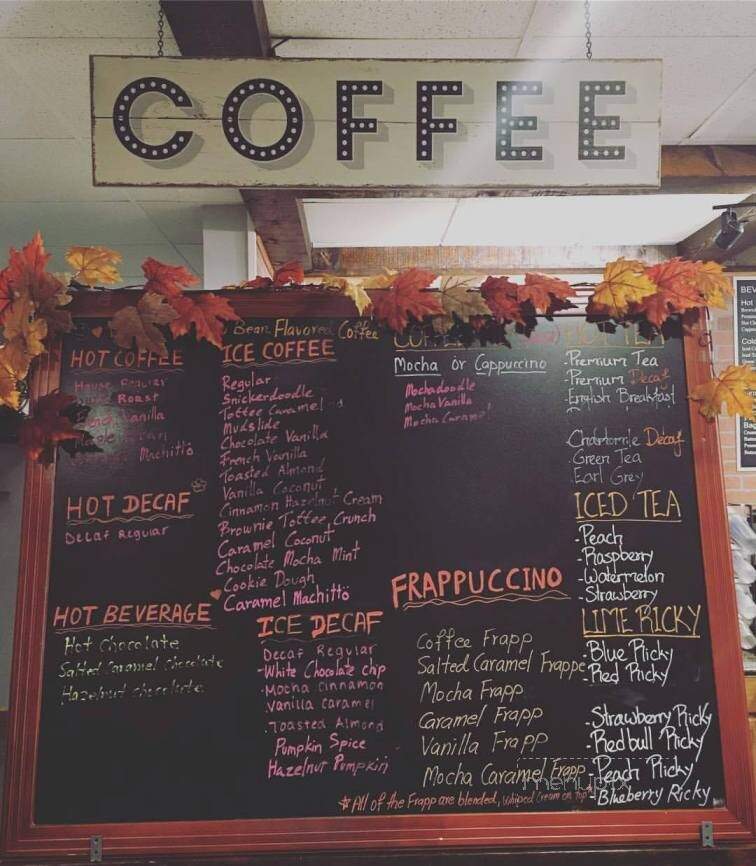 COFFEE
HOT COFFEE
House Regular
Roast
French Vanilla
Machittò
HOT DECAF
Decaf Regular
HOT BEVERAGE
Hot Chocolate
Salted Caramel Chocolate
Hazelnut Chocolate
Bean Flavored Coffee
ICE COFFEE
Regular
Snickerdoodle
Toffee Caramel
Mudslide
Chocolate Vanilla
French Vanilla
Toasted Almond
Vanilla Coconut
Cinnamon Hazelnut Cream
Brownie Toffee Crunch
Caramel Coconut
Chocolate Mocha Mint
Cookie Dough
Caramel Machittò
ICE DECAF
Decaf Regular
-White Chocolate chip
.Mocha Cinnamon
Vanilla Caramel
.Toasted Almond
Pumpkin Spice
Hazelnut Pumpkin
Mocha or Cappuccino
Mochadoodle
Mocha Vanilla
Mocha Caramel
FRAPPUCCINO
Coffee Frapp
Salted Caramel Frappe
Mocha Frapp
Caramel Frapp
Vanilla Frapp
Mocha Caramel Frapp
#All of the Frapp are blended, whiped Cream on top
TEA
Premium Tea
-Premium Decaf
-English Breakfast
-Chamomile Decaf
-Green Tea
-Earl Grey
ICED TEA
-Peach
-Raspberry
-Watermelon
-Strawberry
LIME RICKY
-Blue Ricky
-Red Ricky
-Strawberry Ricky
-Redbull Ricky
-Peach Ricky
-Blueberry Ricky
menupix